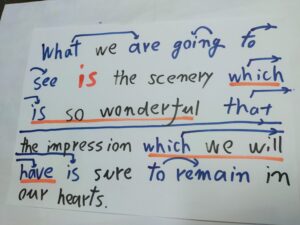 What we are going to
see is the scenery which
is so wonderful that
the impression which we will
have is sure to remain in
our hearts.